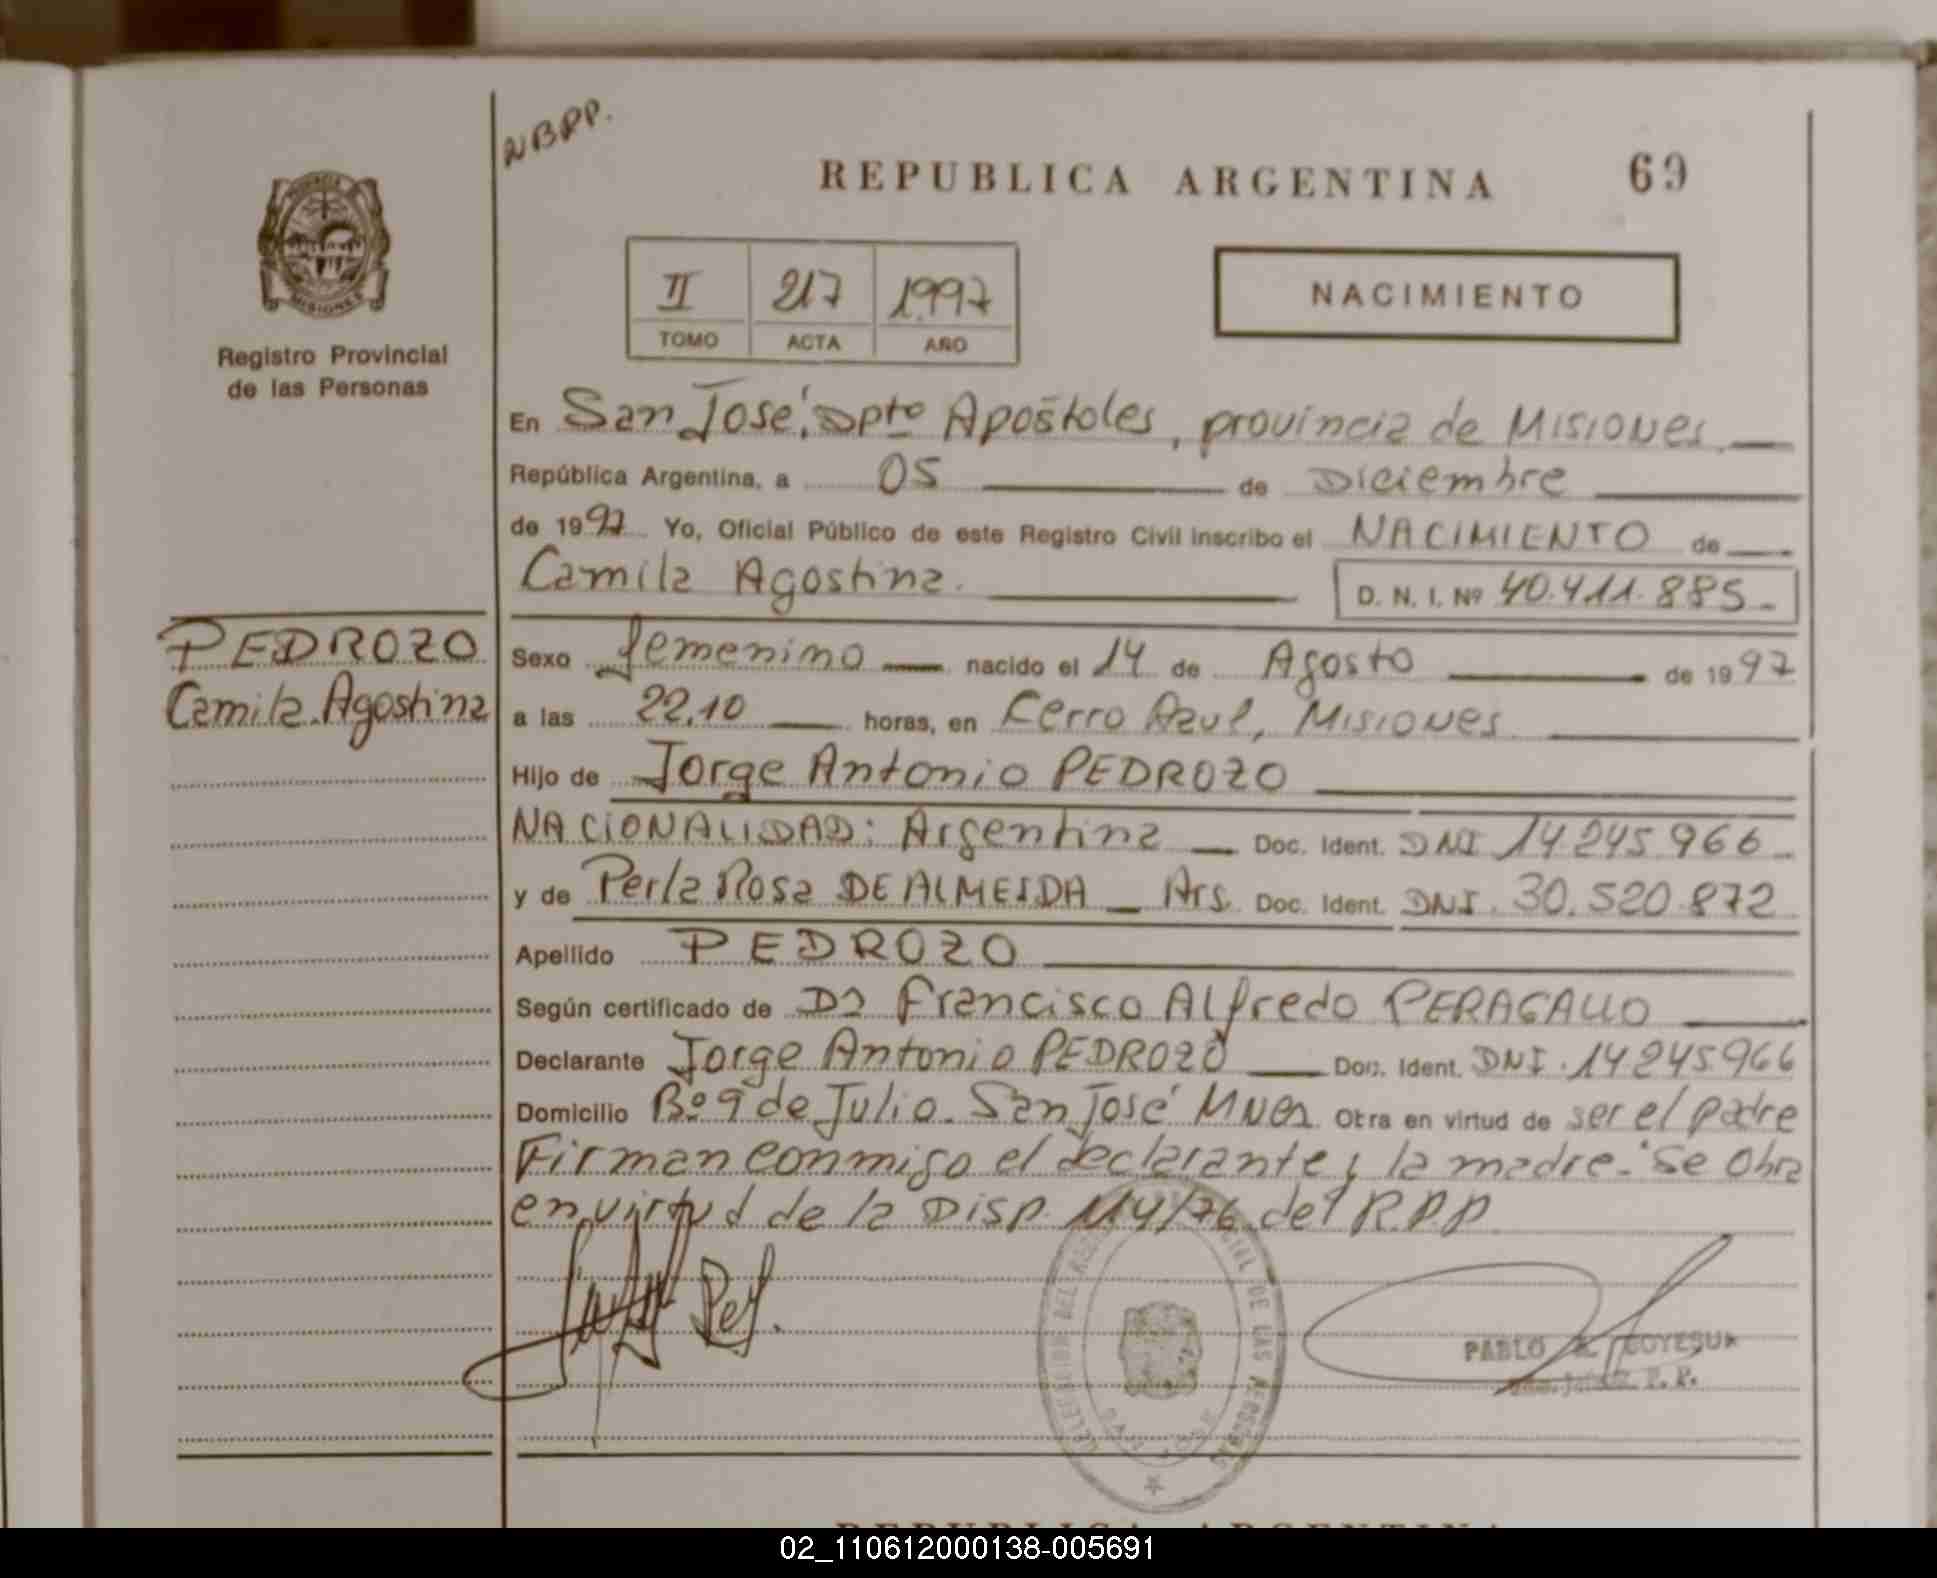 NBPP.
REPUBLICA ARGENTINA 69
PROVINCIA
MISIONES
Registro Provincial
de las Personas
II 217 1.997
TOMO ACTA AÑO
NACIMIENTO
En San José, Dpto Apóstoles, provincia de Misiones
República Argentina, a 05 de Diciembre
de 1997 Yo, Oficial Público de este Registro Civil inscribo el NACIMIENTO de
Camila Agostina.
D. N. I. Nº 40.411.885
PEDROZO
Camila Agostina
Sexo femenino nacido el 14 de Agosto de 1997
a las 22,10 horas, en Cerro Azul, Misiones
Hijo de Jorge Antonio PEDROZO
NACIONALIDAD: Argentina Doc. Ident. DNI 14 245 966
y de Perla Rosa DE ALMEIDA Arg. Doc. Ident. DNI. 30.520.872
Apellido PEDROZO
Según certificado de Dr Francisco Alfredo PERAGALLO
Declarante Jorge Antonio PEDROZO Doc. Ident. DNI. 14 245.966
Domicilio Bº 9 de Julio. San José Mnes Obra en virtud de ser el padre
Firman conmigo el declarante y la madre. Se obra
en virtud de la Disp. 114/76 del R.P.P
PABLO
REPUBLICA ARGENTINA
02_110612000138-005691